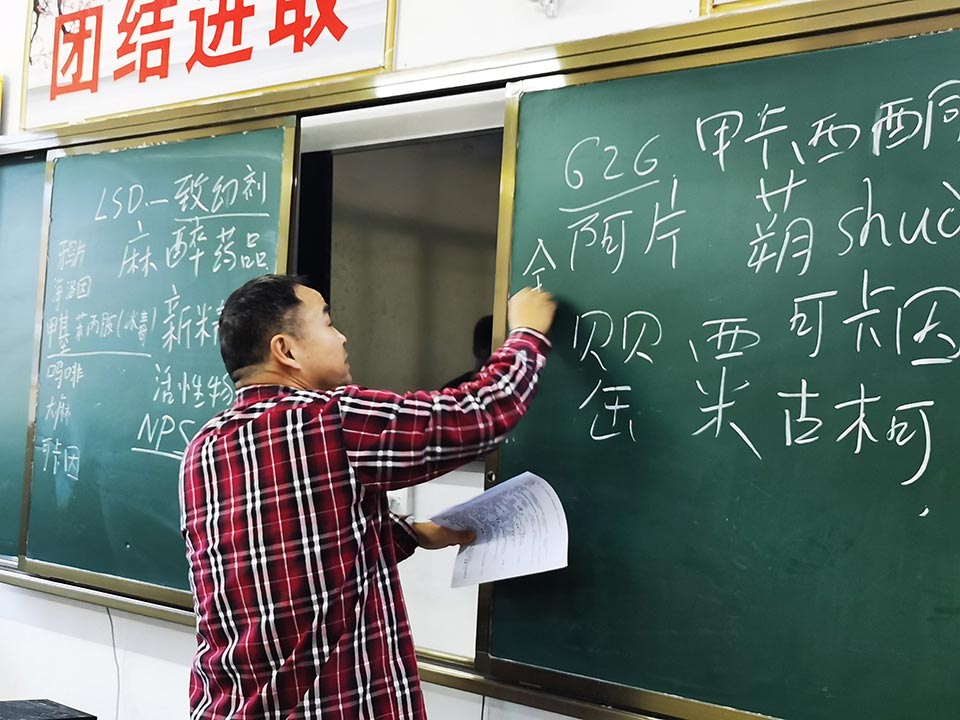 团结进取
LSD.一致幻剂
麻醉药品
新精
活性物
NPS
鸦片
海洛因
甲基苯丙胺(冰毒)
吗啡
大麻
可卡因
626 甲卡西酮
阿片 䓥 shuò
全
贝贝 西 可卡因
缶 米 古柯